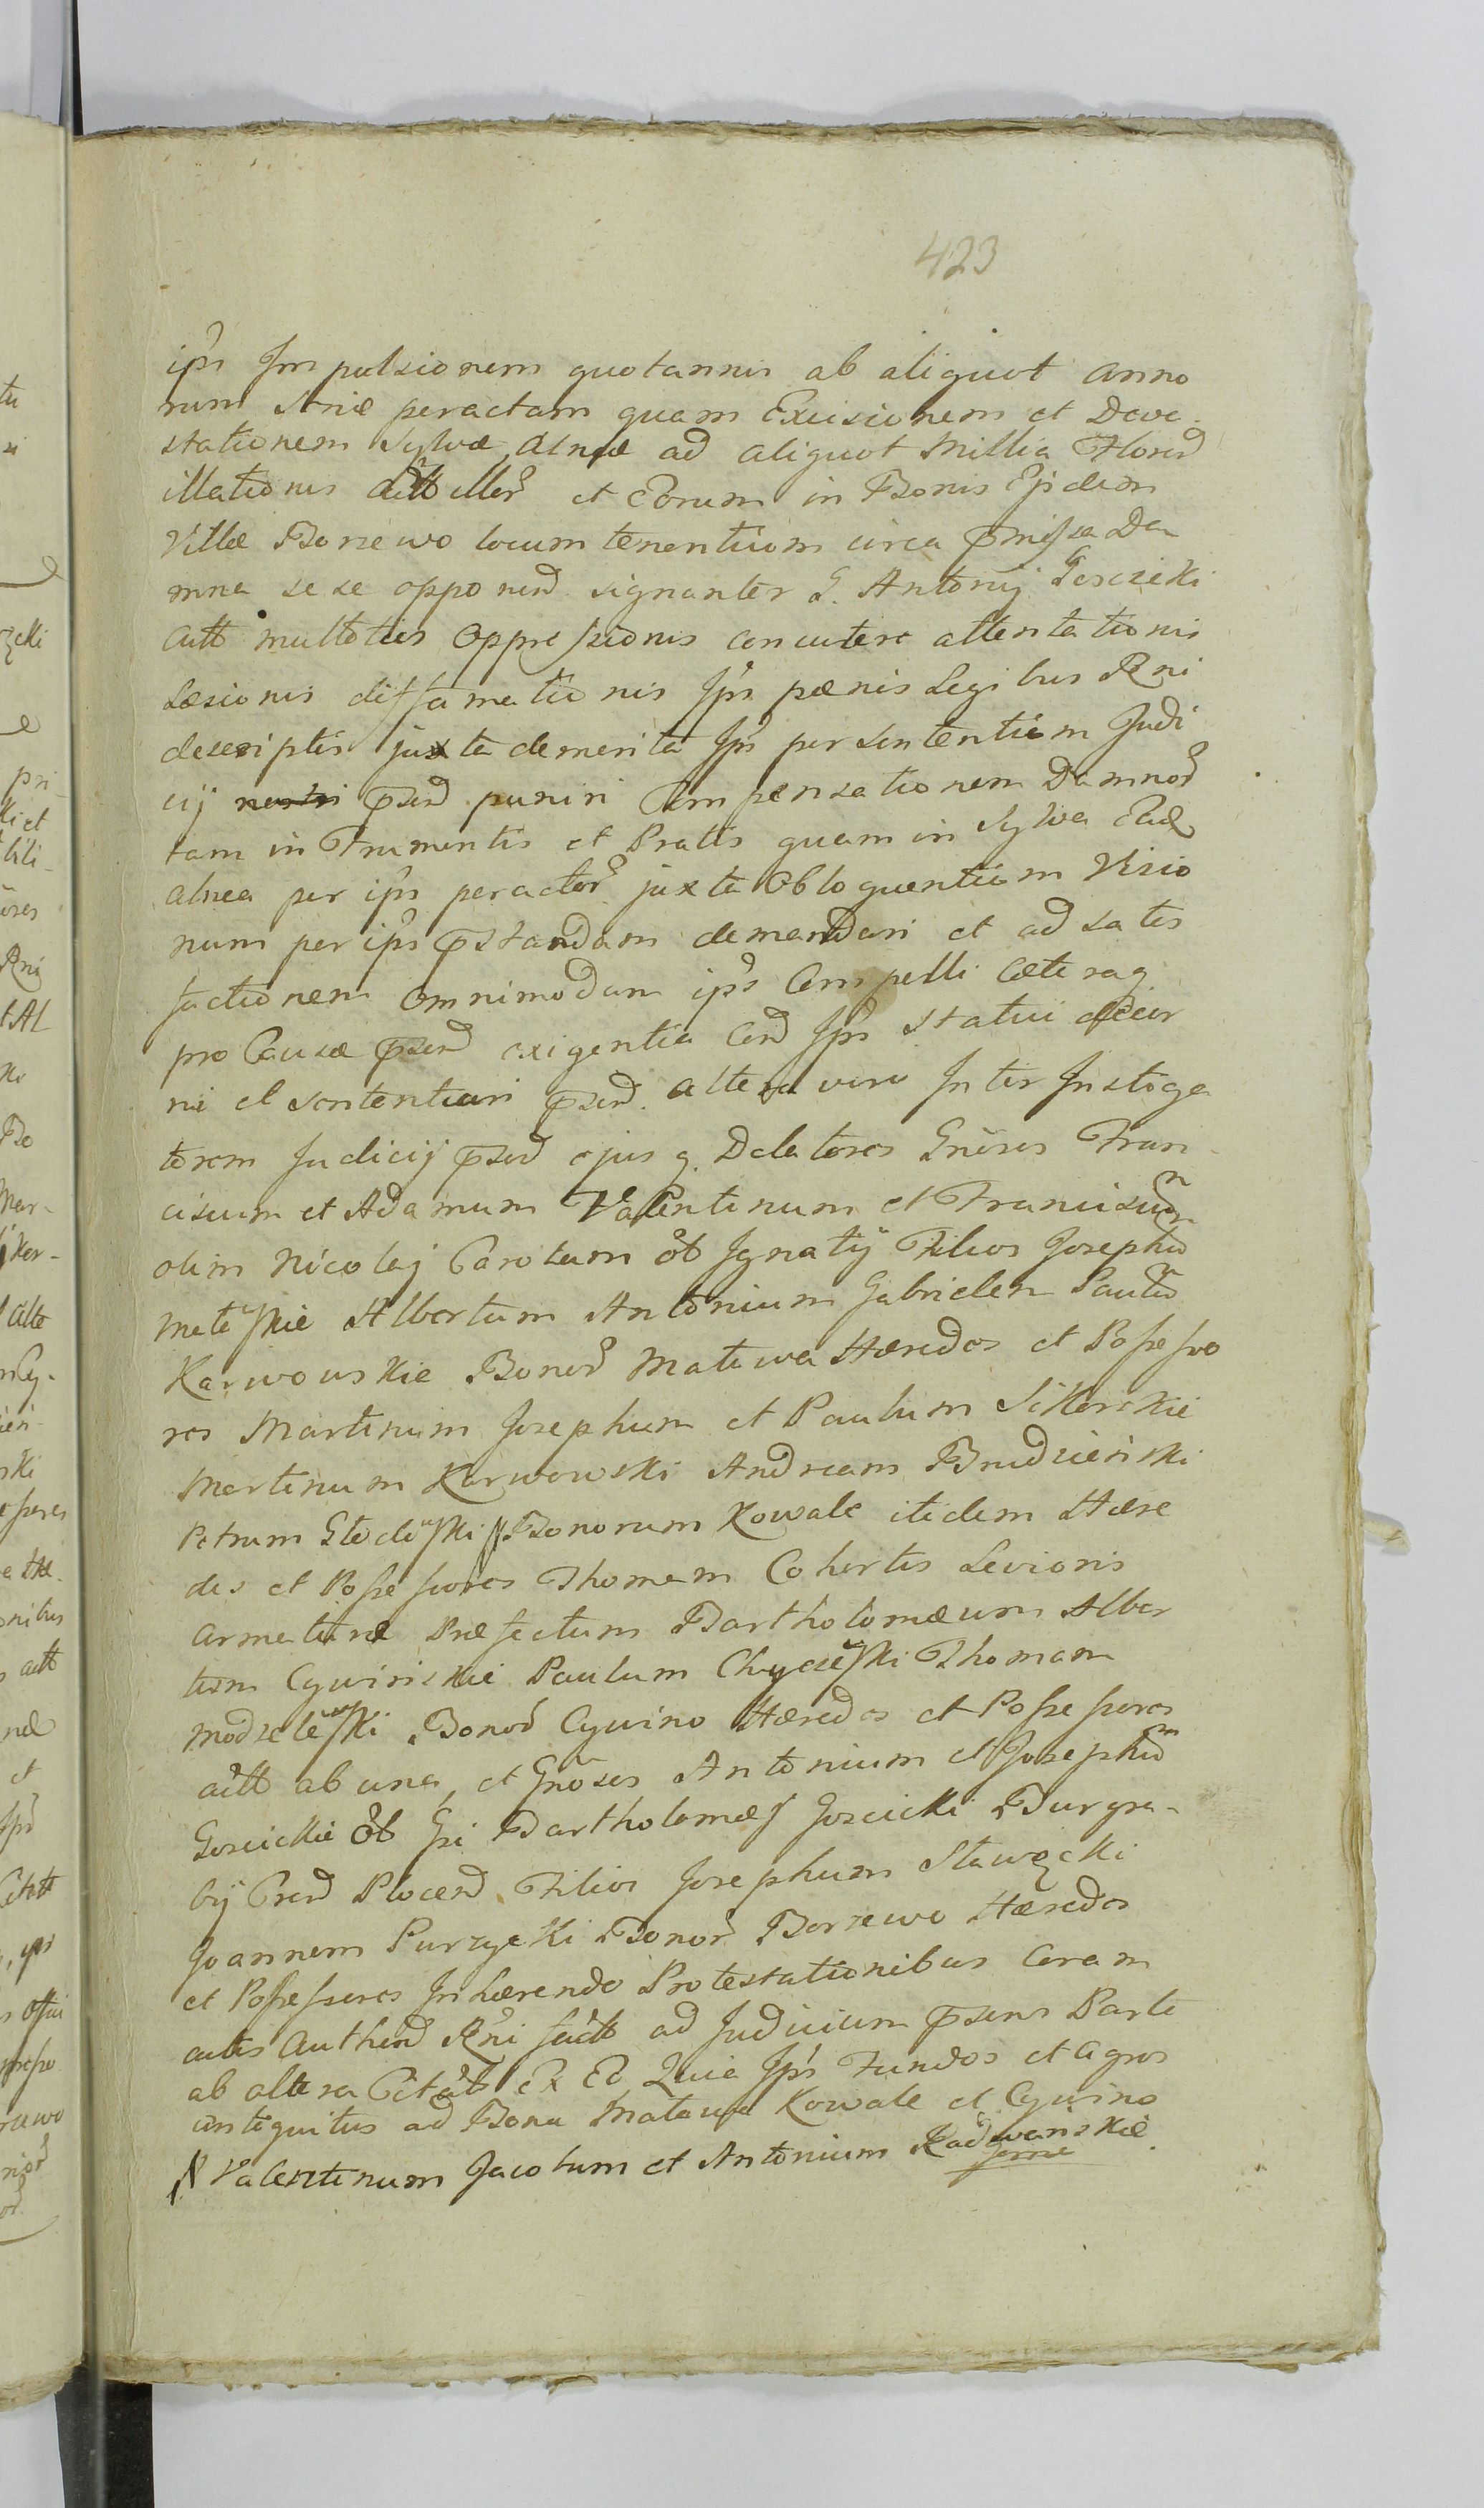 423
ips Impulsionem quotannis ab aliquot anno
rum peractam quam Excisionem et Deva
stationem Sylvæ Alneæ ad aliquot Millia Floren
illationis actt et Eorum in Bonis Ejsdem
Villæ Borzewo locum tenentium circa pmissa Da
mna sese opponen signanter G. Antonij Goscicki
actt multoties Oppressionis concutere attentationis
Læsionis diffamationis Ips pænis Legibus Rni
descriptis juxta demerita Ips per Sententiam Judi
cij psen puniri Compensationem Damnor
tam in Frumentis et Pratis quam in Sylva Ead
alnea per ips peractor juxta Obloquentiam Visio
num per ips pstandam demandari et ad satis
factionem omnimodam ips Compelli Cæteraq
pro Causæ psen exigentia Cen Ips Statui decer
ni et Sententiari psen. Altera vero Inter Instiga
torem Judicij psen ejusq. Delatores Gnosos Fran
ciscum et Adamum Valentinum et Franciscum
olim Nicolaj Carolum ol Ignatij Filios Josephum
Mateuskie Albertum Antonium Gabrielem Paulum
Karwowskie Bonor Matawa Hæredes et Possesso
res Martinum Josephum et Paulum Sikorskie
Martinum Karwowski Andream Brudzienski
Petrum Bonorum Kowale itidem Hære
des et Possessores Thomam Cohortis Levioris
armaturæ Præfectum Bartholomæum Alber
tum Cywinskie Paulum Thomam
Modzelewski Bonor Cywino Hæredes et Possessores
actt ab una, et Gnosos Antonium et Josephum
Goscickie ol Gsi Bartholomæj Goscicki Burgra-
bij Cren Plocen Filios Josephum Stawęcki
Joannem Purzycki Bonor Borzewo Hæredes
et Possessores Inhærendo Protestationibus Coram
actis Authen Rni factt ad Judicium psens Parte
ab altera Citatt Ex Eo Quia Ips Fundos et Agros
antiquitus ad Bona Matawa Kowale et Cywino
Valentinum Jacobum et Antonium Radwanskie